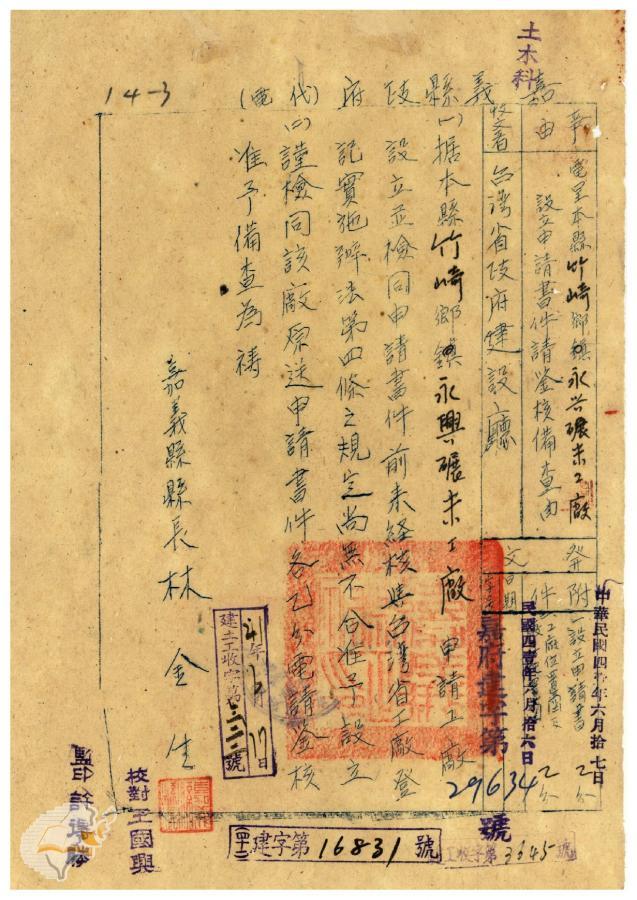 土木科
14-3
嘉義縣政府(代電)
事由
電呈本縣竹崎鄉鎮永兴碾米工廠
設立申請書件請鉴核備查由
受文者
台湾省政府建設廳
發文
日期
附件
一設立申請書 乙分
工廠位置圖 乙分
中華民國四壹年六月拾七日
民國四壹年六月拾六日
嘉府建字第29634號
(一)据本縣竹崎鄉鎮永興碾米工廠申請工廠
設立並檢同申請書件前来経核與台湾省工廠登
記實施辦法第四條之規定尚無不合准予設立
(二)謹檢同該廠原送申請書件各乙分電請鉴核
准予備查為禱
嘉義縣縣長林金生
建土工收字第 號
41年 月17日
校對王國興
監印許
(四十一)建字第16831號
工收字第3345號